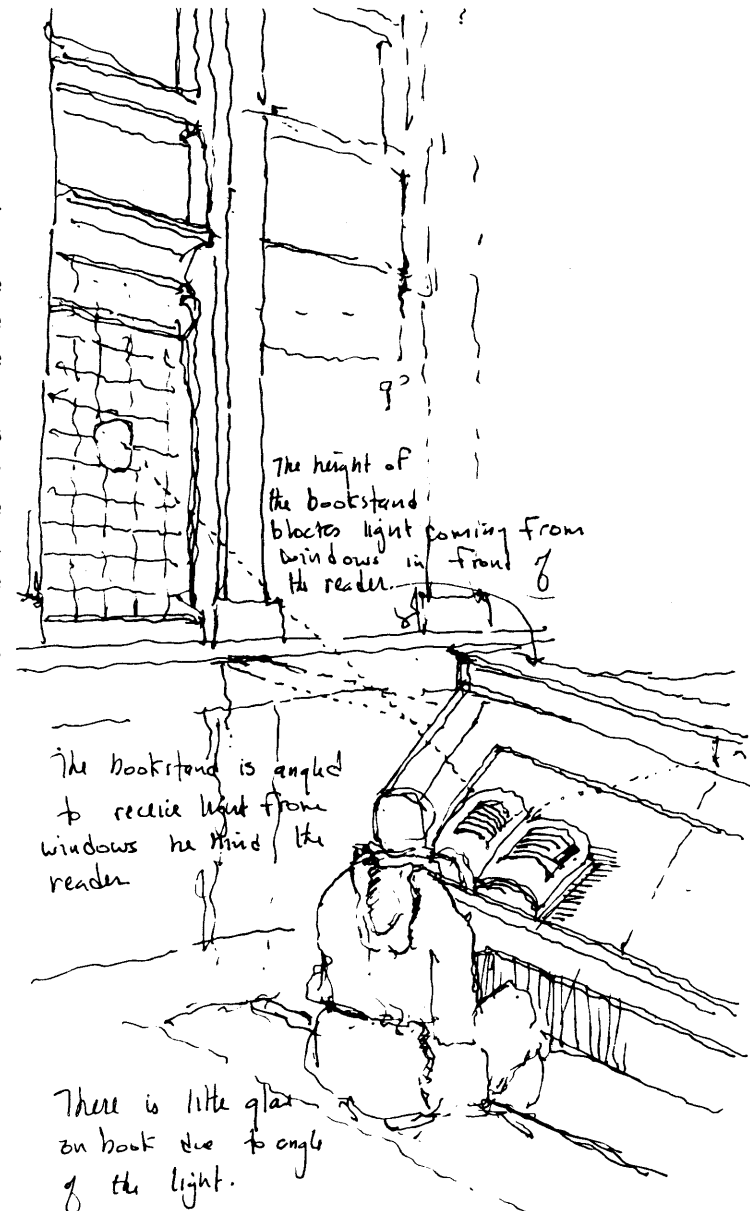 The height of
the bookstand
blocks light coming from
windows in front of
the reader.
The bookstand is angled
to receive light from
windows behind the
reader
There is little glare
on book due to angle
of the light.